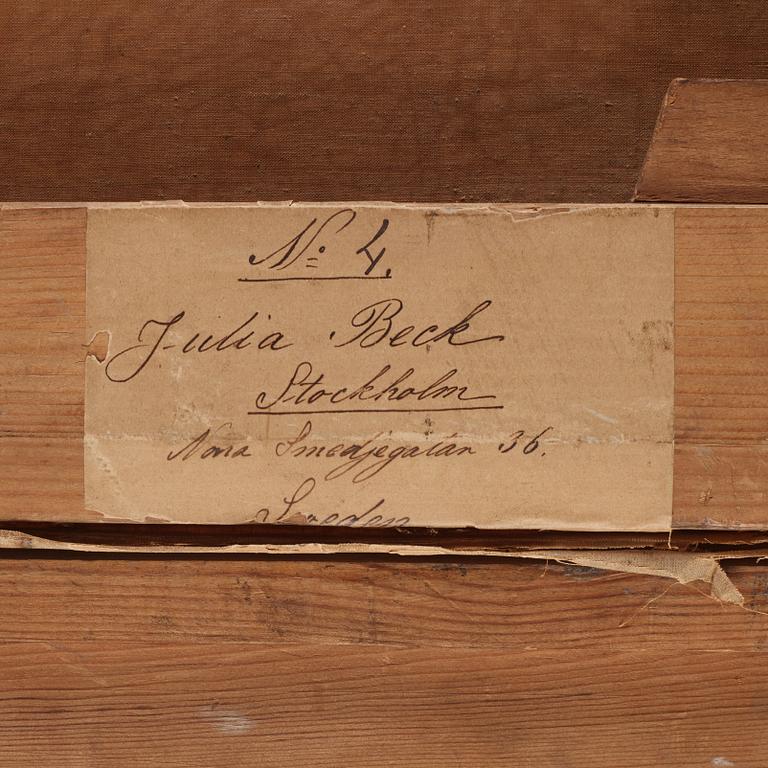 No. 4.
Julia Beck
Stockholm
Norra Smedjegatan 36.
Sweden